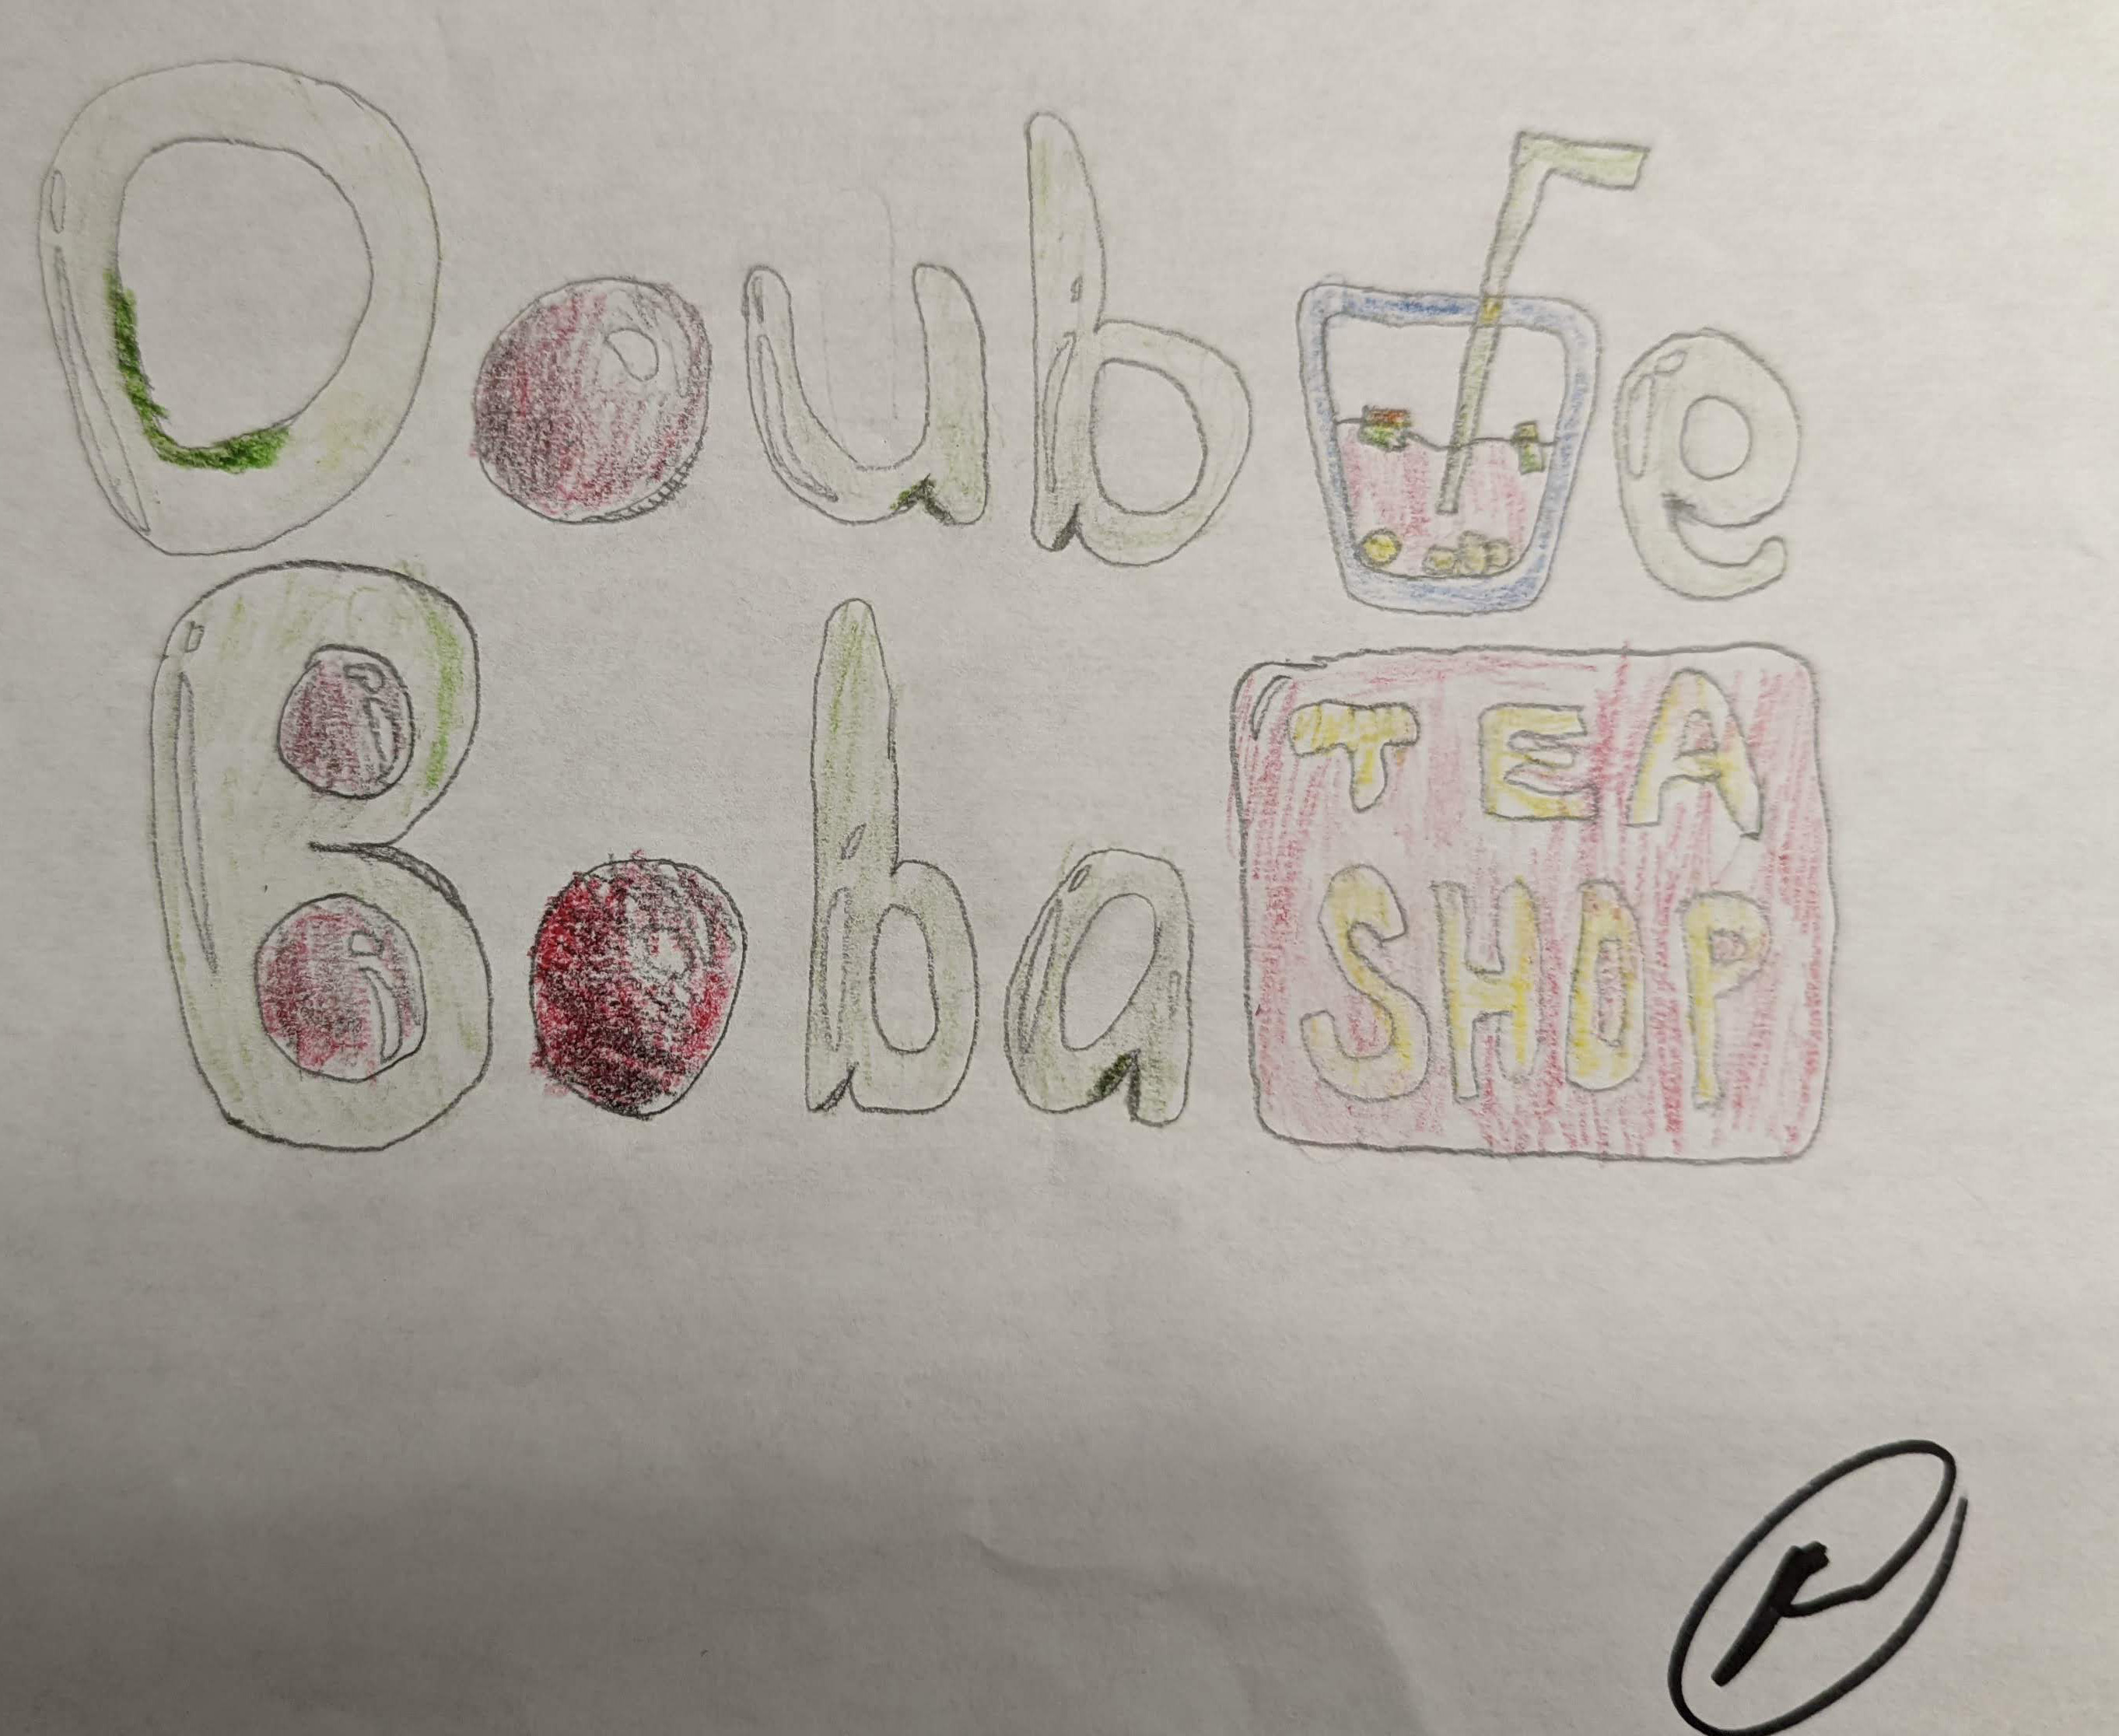 Double
Boba
TEA
SHOP